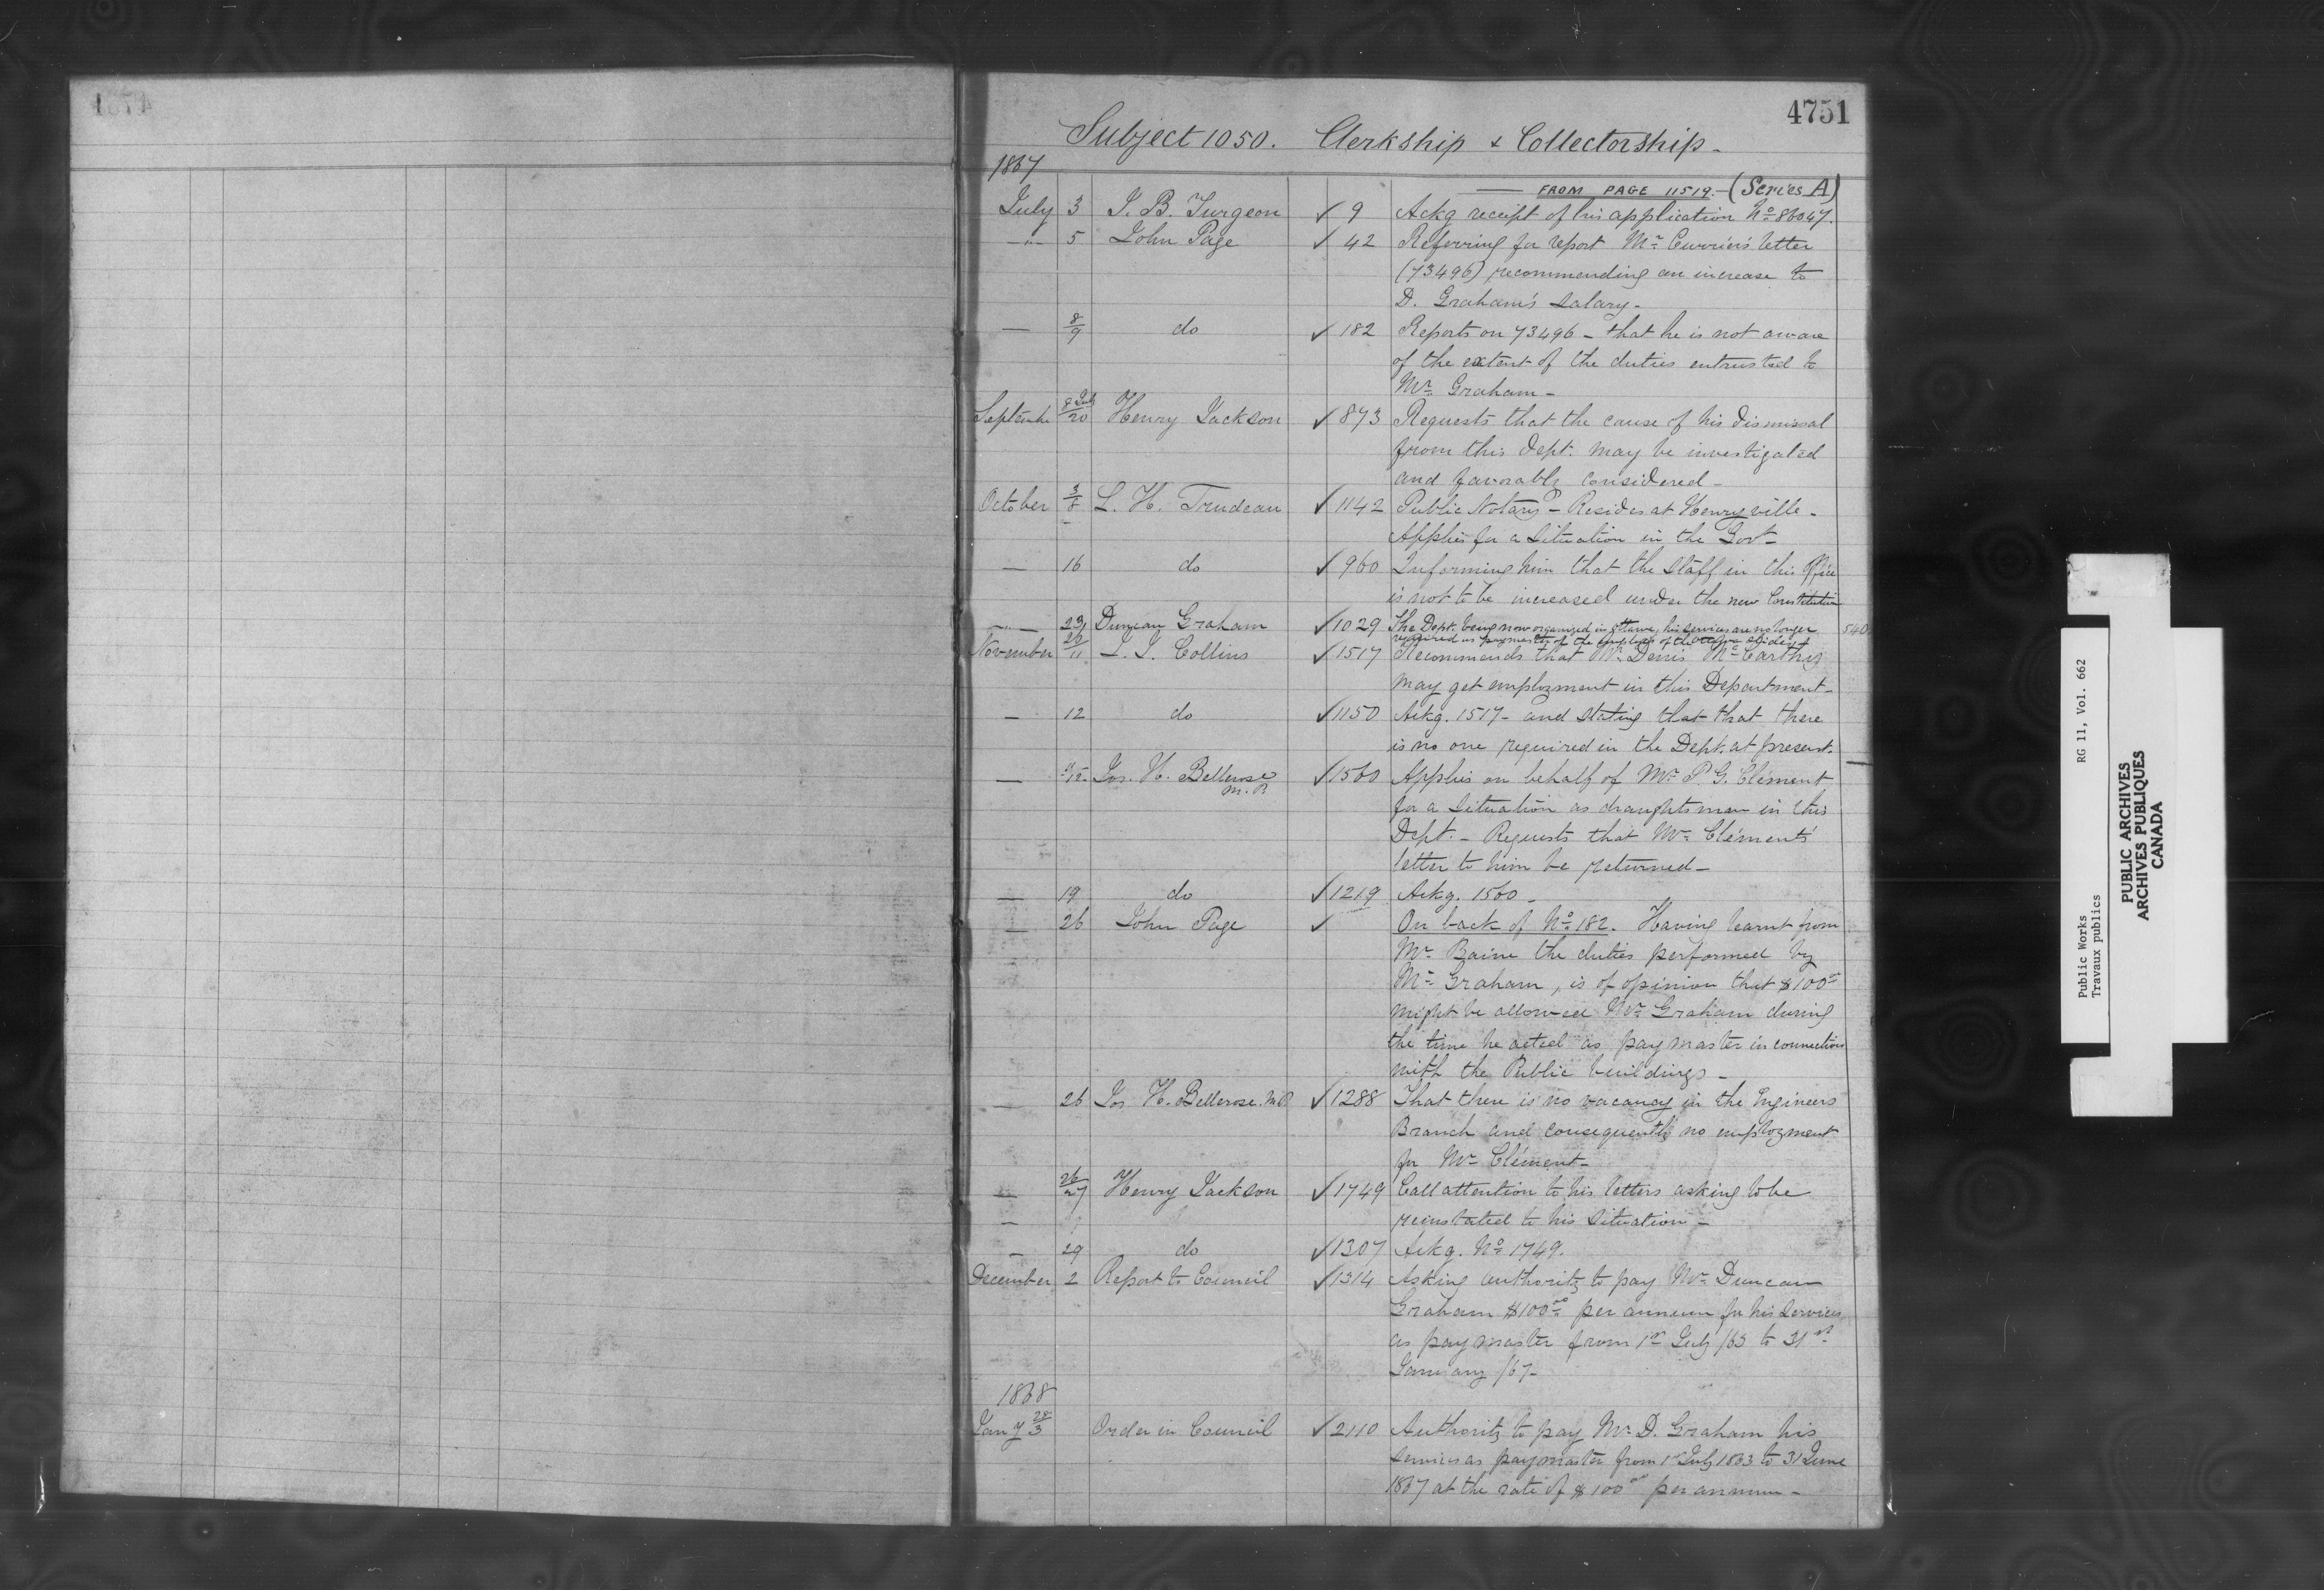 4751
Subject 1050. Clerkship & Collectorship -
1867
FROM PAGE 11519. - (Series A)
July 3 J. B. Turgeon ✓ 9 Ackg receipt of his application No 86047.
—"— 5 John Page ✓ 42 Referring for report Mr Currier's letter
(73496) recommending an increase to
D. Graham's Salary -
— 8/9 do ✓ 182 Reports on 73496 - that he is not aware
of the extent of the duties entrusted to
Mr Graham -
Septembr 8 July/20 Henry Jackson ✓ 873 Requests that the cause of his dismissal
from this Dept. may be investigated
and favorably considered -
October 3/8 L. H. Trudeau ✓ 1142 Public Notary - Resides at Henryville -
Applies for a Situation in the Govt -
— 16 do ✓ 960 Informing him that the Staff in this Office
is not to be increased under the new Constitution
—"— 23 Duncan Graham ✓ 1029 The Dept. being now organized in Ottawa, his services are no longer 540
required as paymaster of the employés of the
November 26/11 L. J. Collins ✓ 1517 Recommends that Mr Denis McCarthy
may get employment in this Department -
— 12 do ✓ 1150 Ackg. 1517 - and stating that that there
is no one required in the Dept. at present.
— 9/12 Jos. H. Bellerose ✓ 1560 Applies on behalf of Mr P. G. Clément
M.P.
for a Situation as draughtsman in this
Dept. - Requests that Mr Clément's
letter to him be returned -
— 19 do ✓ 1219 Ackg. 1560 -
— 26 John Page ✓ On back of No 182. Having learnt from
Mr Baine the duties performed by
Mr Graham, is of opinion that $100
might be allowed Mr Graham during
the time he acted as paymaster in connection
with the Public buildings -
— 26 Jos H. Bellerose. M.P. ✓ 1288 That there is no vacancy in the Engineers
Branch and consequently no employment
for Mr Clément -
— 26/27 Henry Jackson ✓ 1749 Call attention to his letters asking to be
— reinstated to his Situation -
— 29 do ✓ 1307 Ackg. No 1749.
December 2 Report to Council ✓ 1314 Asking authority to pay Mr Duncan
Graham $100.00 per annum for his Services
as paymaster from 1st July /63 to 31st
January /67 -
1868
Jany 28/3 Order in Council ✓ 2110 Authority to pay Mr D. Graham his
services as paymaster from 1st July 1863 to 31 June
1867 at the rate of $100.00 per annum -
Public Works RG 11, Vol. 662
Travaux publics
PUBLIC ARCHIVES
ARCHIVES PUBLIQUES
CANADA